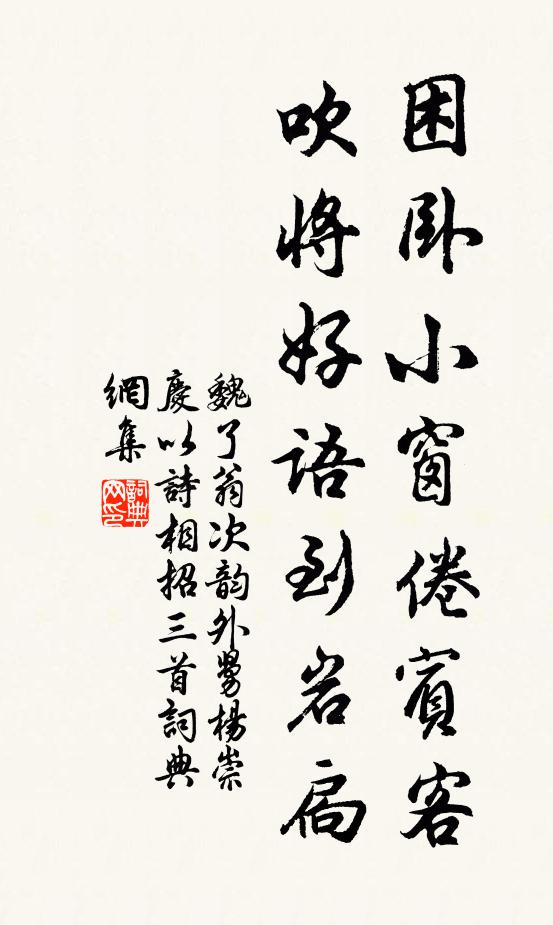 困卧小窗倦賓客
吹將好語到岩扃
魏了翁次韵外舅楊崇
慶以詩相招三首詞典
網集
詞典
网印